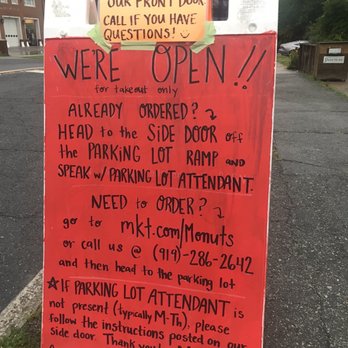 OUR FRONT DOOR
CALL IF YOU HAVE
QUESTIONS!
WE'RE OPEN!!
for takeout only
ALREADY ORDERED?
HEAD to the SIDE DOOR off
the PARKING LOT RAMP AND
SPEAK w/ PARKING LOT ATTENDANT.
NEED to ORDER?
go to mkt.com/Monuts
or call us @ (919)-286-2642
and then head to the parking lot
★IF PARKING LOT ATTENDANT is
not present (typically M-Th), please
follow the instructions posted on our
side door. Thank you!